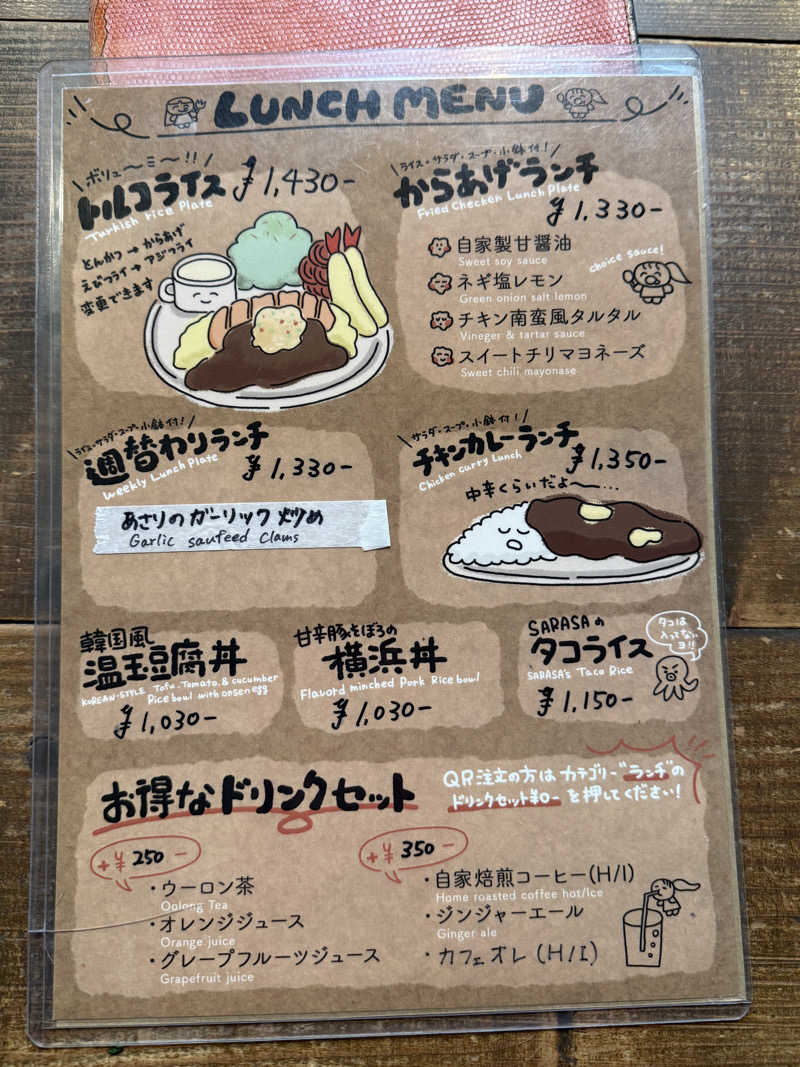 LUNCH MENU
ボリュ〜ミ〜!!
トルコライス ¥1,430-
Turkish rice Plate
とんかつ→からあげ
えびフライ→アジフライ
変更できます
ライス・サラダ・スープ・小鉢付!
からあげランチ
Fried Checken Lunch Plate
¥1,330-
自家製甘醤油
Sweet soy sauce
choice sauce!
ネギ塩レモン
Green onion salt lemon
チキン南蛮風タルタル
Vineger & tartar sauce
スイートチリマヨネーズ
Sweet chili mayonase
ライス・サラダ・スープ・小鉢付!
週替わりランチ
Weekly Lunch Plate
¥1,330-
あさりのガーリック炒め
Garlic saufeed Clams
サラダ・スープ・小鉢付!
チキンカレーランチ
Chicken curry Lunch
¥1,350-
中辛くらいだよ〜...
韓国風
温玉豆腐丼
KOREAN-STYLE Tofu.Tomato.& cucumber
Rice bowl with onsen egg
¥1,030-
甘辛豚そぼろの
横浜丼
Flavord minched Pork Rice bowl
¥1,030-
SARASAの
タコライス
SARASA's Taco Rice
¥1,150-
タコは
入ってない
ヨ!!
お得なドリンクセット
QR注文の方はカテゴリー"ランチ"の
ドリンクセット¥0-を押してください!
+¥250-
・ウーロン茶
Oolong Tea
・オレンジジュース
Orange juice
・グレープフルーツジュース
Grapefruit juice
+¥350-
・自家焙煎コーヒー(H/I)
Home roasted coffee hot/Ice
・ジンジャーエール
Ginger ale
・カフェオレ(H/I)